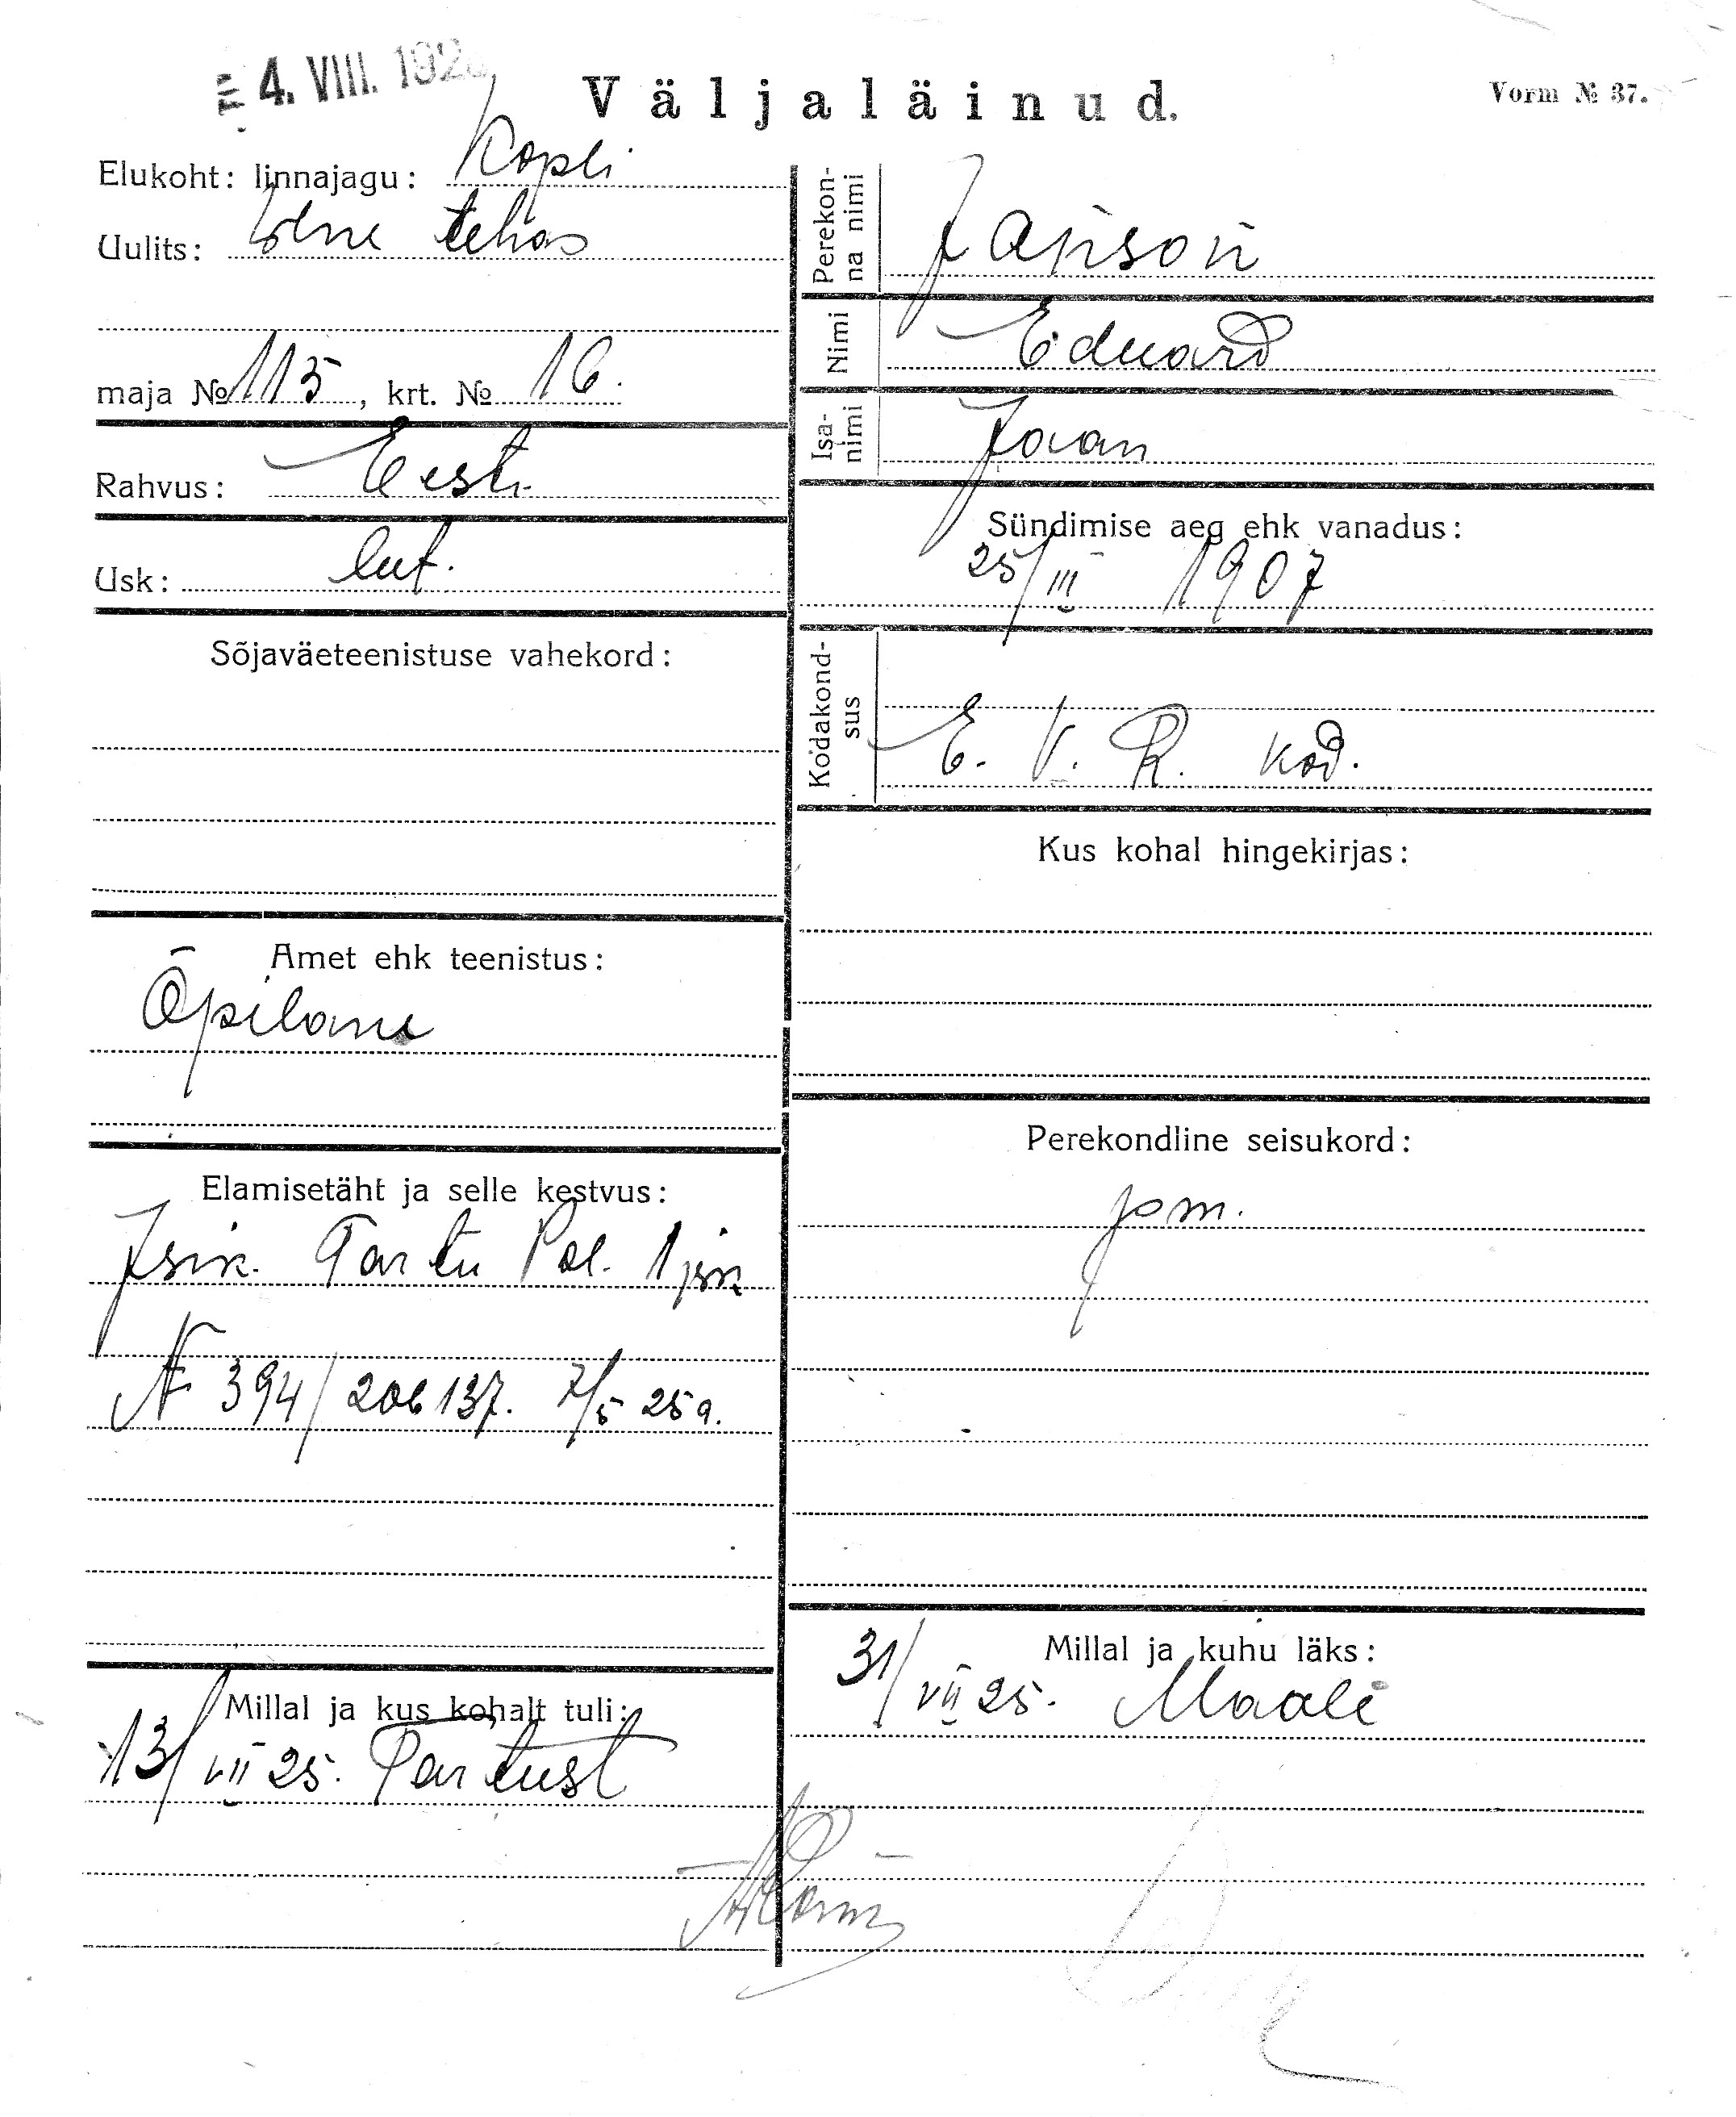 4. VIII. 192
Väljaläinud.
Vorm № 37.
Elukoht: linnajagu: Kopli
Uulits: tehas
maja № 115, krt. № 16.
Rahvus: Eesti
Usk: lut.
Sõjaväeteenistuse vahekord:
Amet ehk teenistus:
Õpilane
Elamisetäht ja selle kestvus:
Isik. Tartu Pol. 1 jsk
№ 394/206137. 7/5 25 a.
Millal ja kus kohalt tuli:
13/VII 25. Tartust
Perekonna nimi Janson
Nimi Eduard
Isanimi Jaan
Sündimise aeg ehk vanadus:
25/III 1907
Kodakondsus
E. V. R. kod.
Kus kohal hingekirjas:
Perekondline seisukord:
pm.
Millal ja kuhu läks:
31/VII 25. Maale